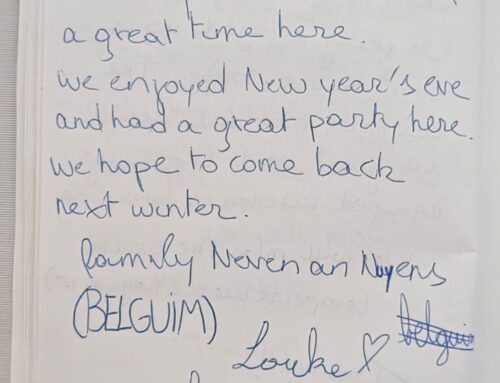 a great time here.
we enjoyed New year's eve
and had a great party here.
we hope to come back
next winter.
family Neven an Nuyens
(BELGUIM)
Louke